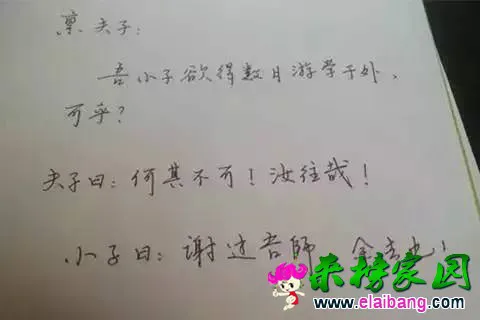 禀夫子：
吾小子欲得数日游学于外，
可乎？
夫子曰：何其不可！汝往哉！
小子曰：谢过吾師，余去也！
来榜家园
www.elaibang.com